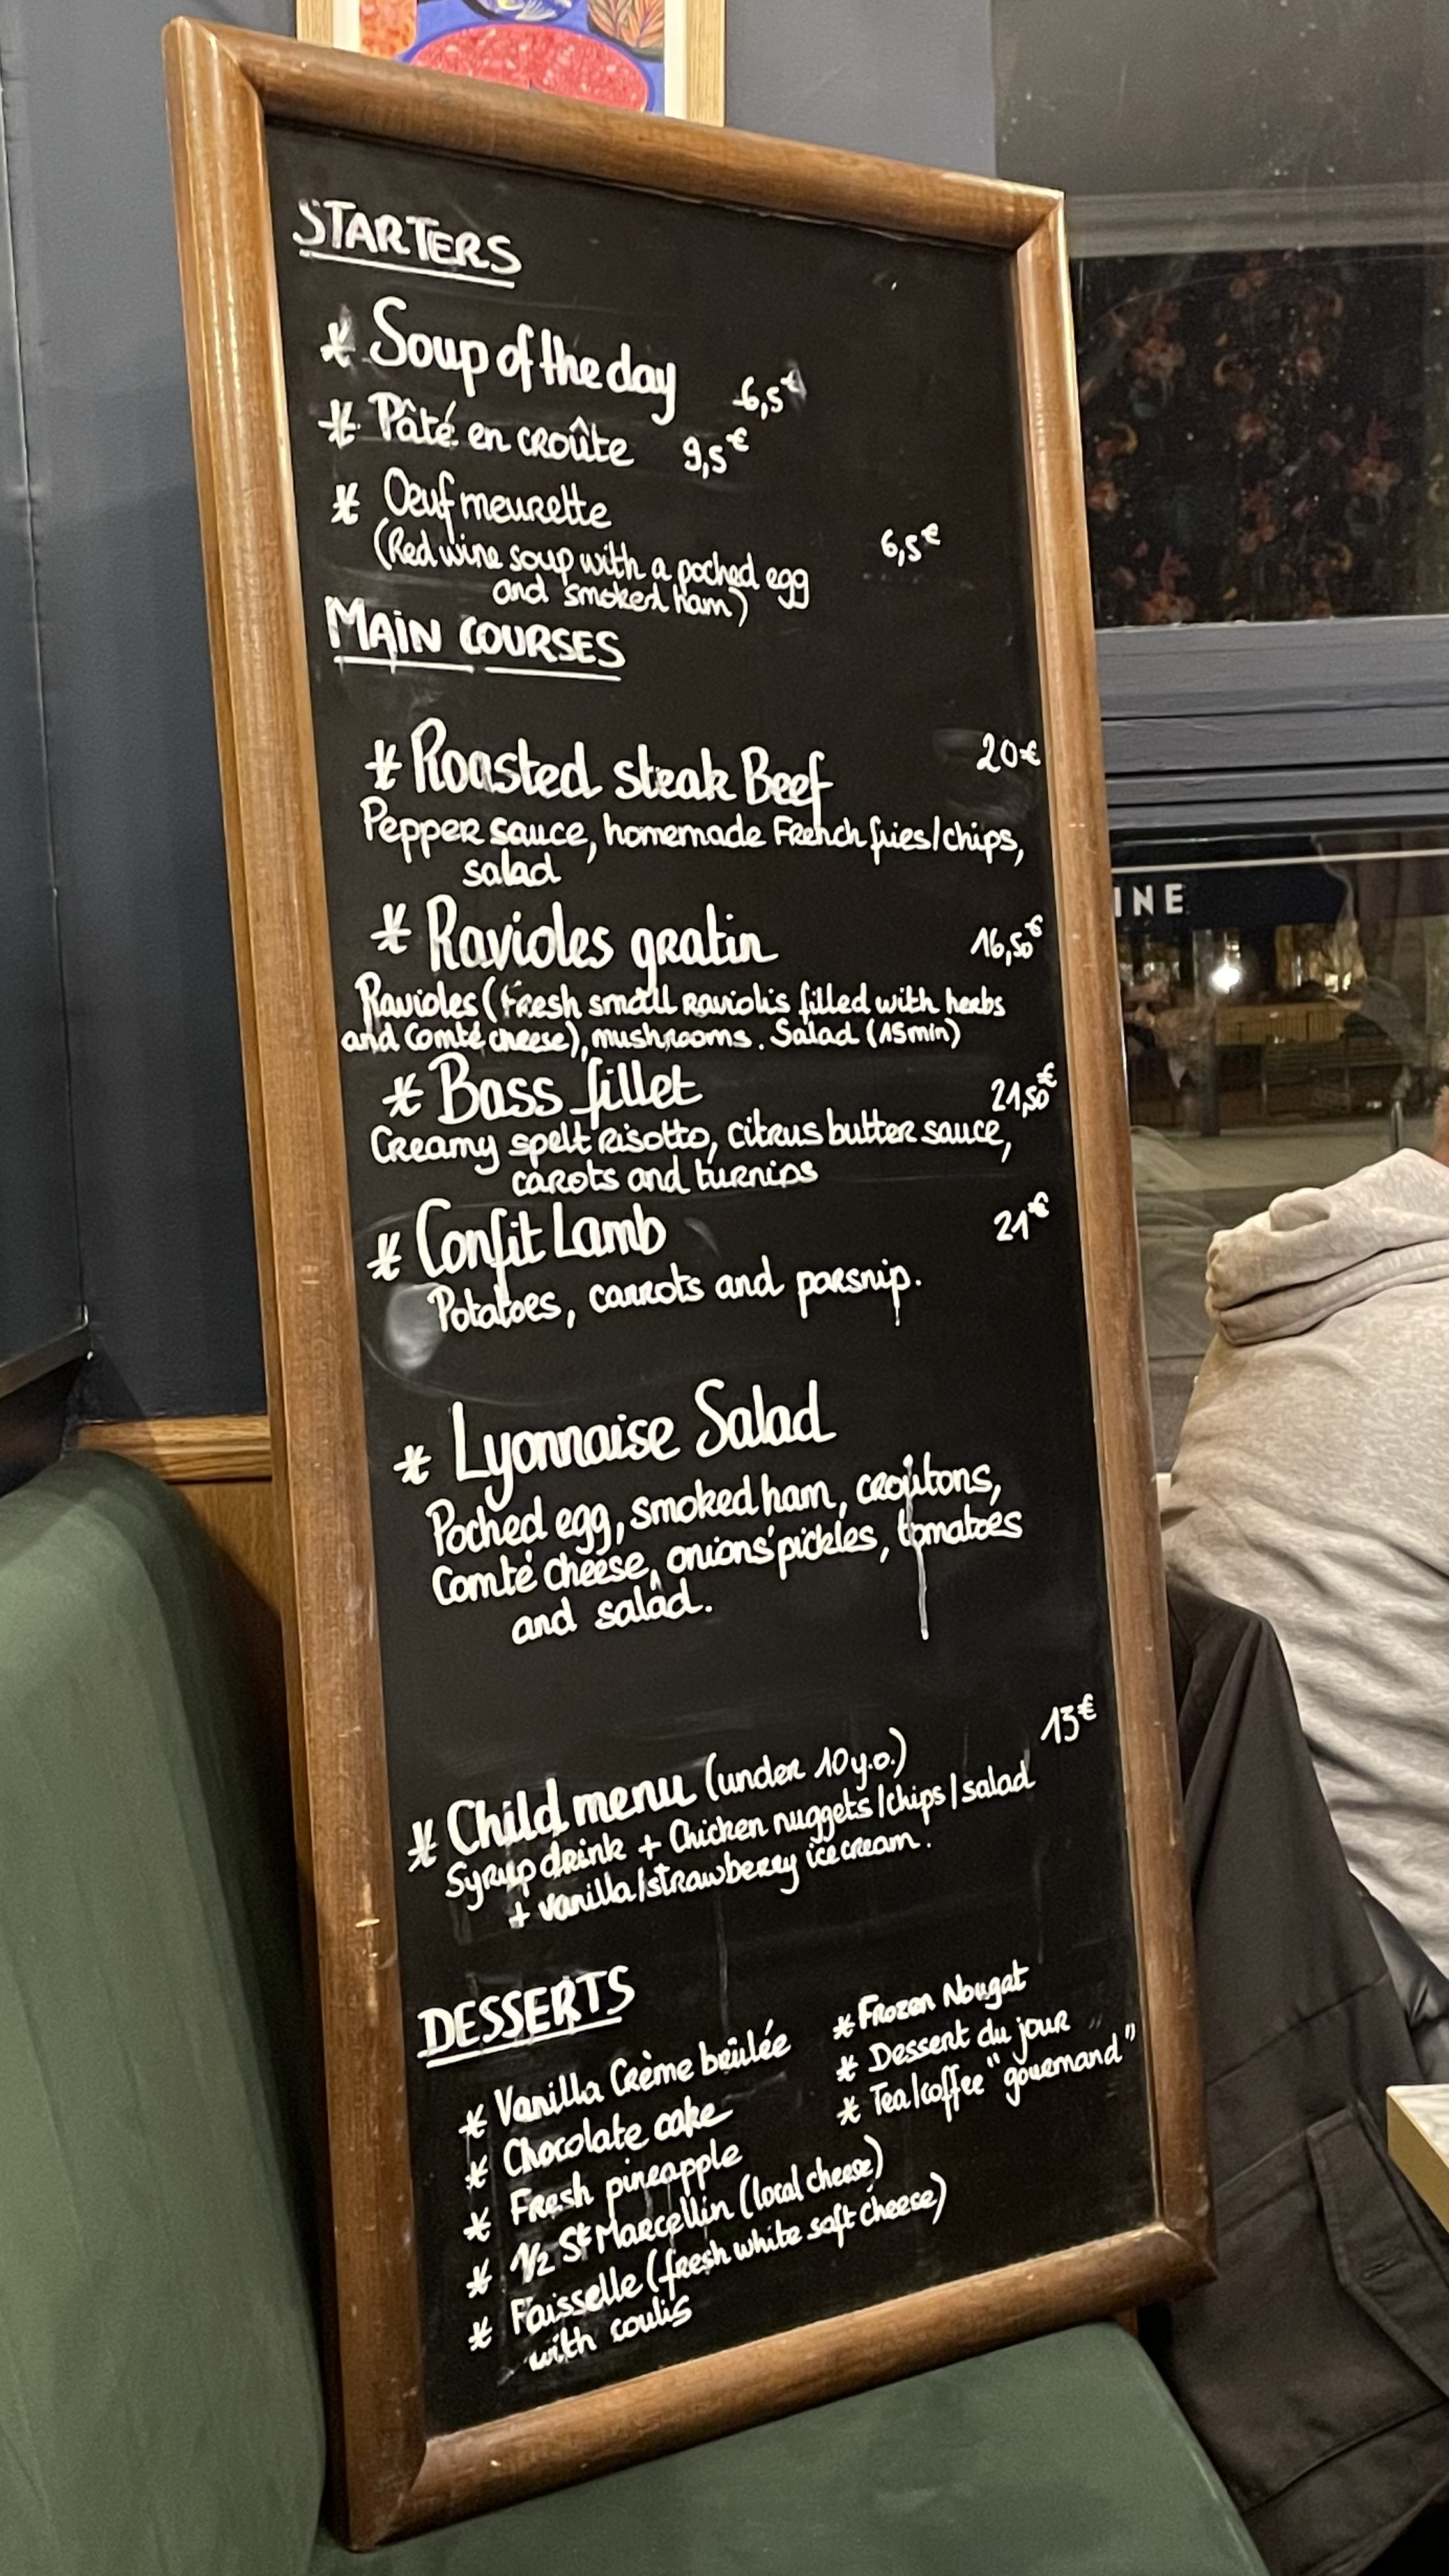 STARTERS
* Soup of the day 6,5€
* Pâté en croûte 9,5€
* Oeuf meurette
(Red wine soup with a poched egg 6,5€
and smoked ham)
MAIN COURSES
* Roasted steak Beef 20€
Pepper sauce, homemade French fries/chips,
salad
* Ravioles gratin 16,50€
Ravioles (Fresh small raviolis filled with herbs
and Comté cheese), mushrooms. Salad (15min)
* Bass fillet 21,50€
Creamy spelt risotto, citrus butter sauce,
carots and turnips
* Confit Lamb 21€
Potatoes, carrots and parsnip.
* Lyonnaise Salad
Poched egg, smoked ham, croûtons,
Comté cheese, onions' pickles, tomatoes
and salad.
* Child menu (under 10 y.o.) 13€
Syrup drink + Chicken nuggets/chips/salad
+ vanilla/strawberry ice cream.
DESSERTS
* Vanilla Crème brûlée
* Chocolate cake
* Fresh pineapple
* 1/2 St Marcellin (local cheese)
* Faisselle (fresh white soft cheese)
with coulis
* Frozen Nougat
* Dessert du jour
* Tea/coffee "gourmand"
INE